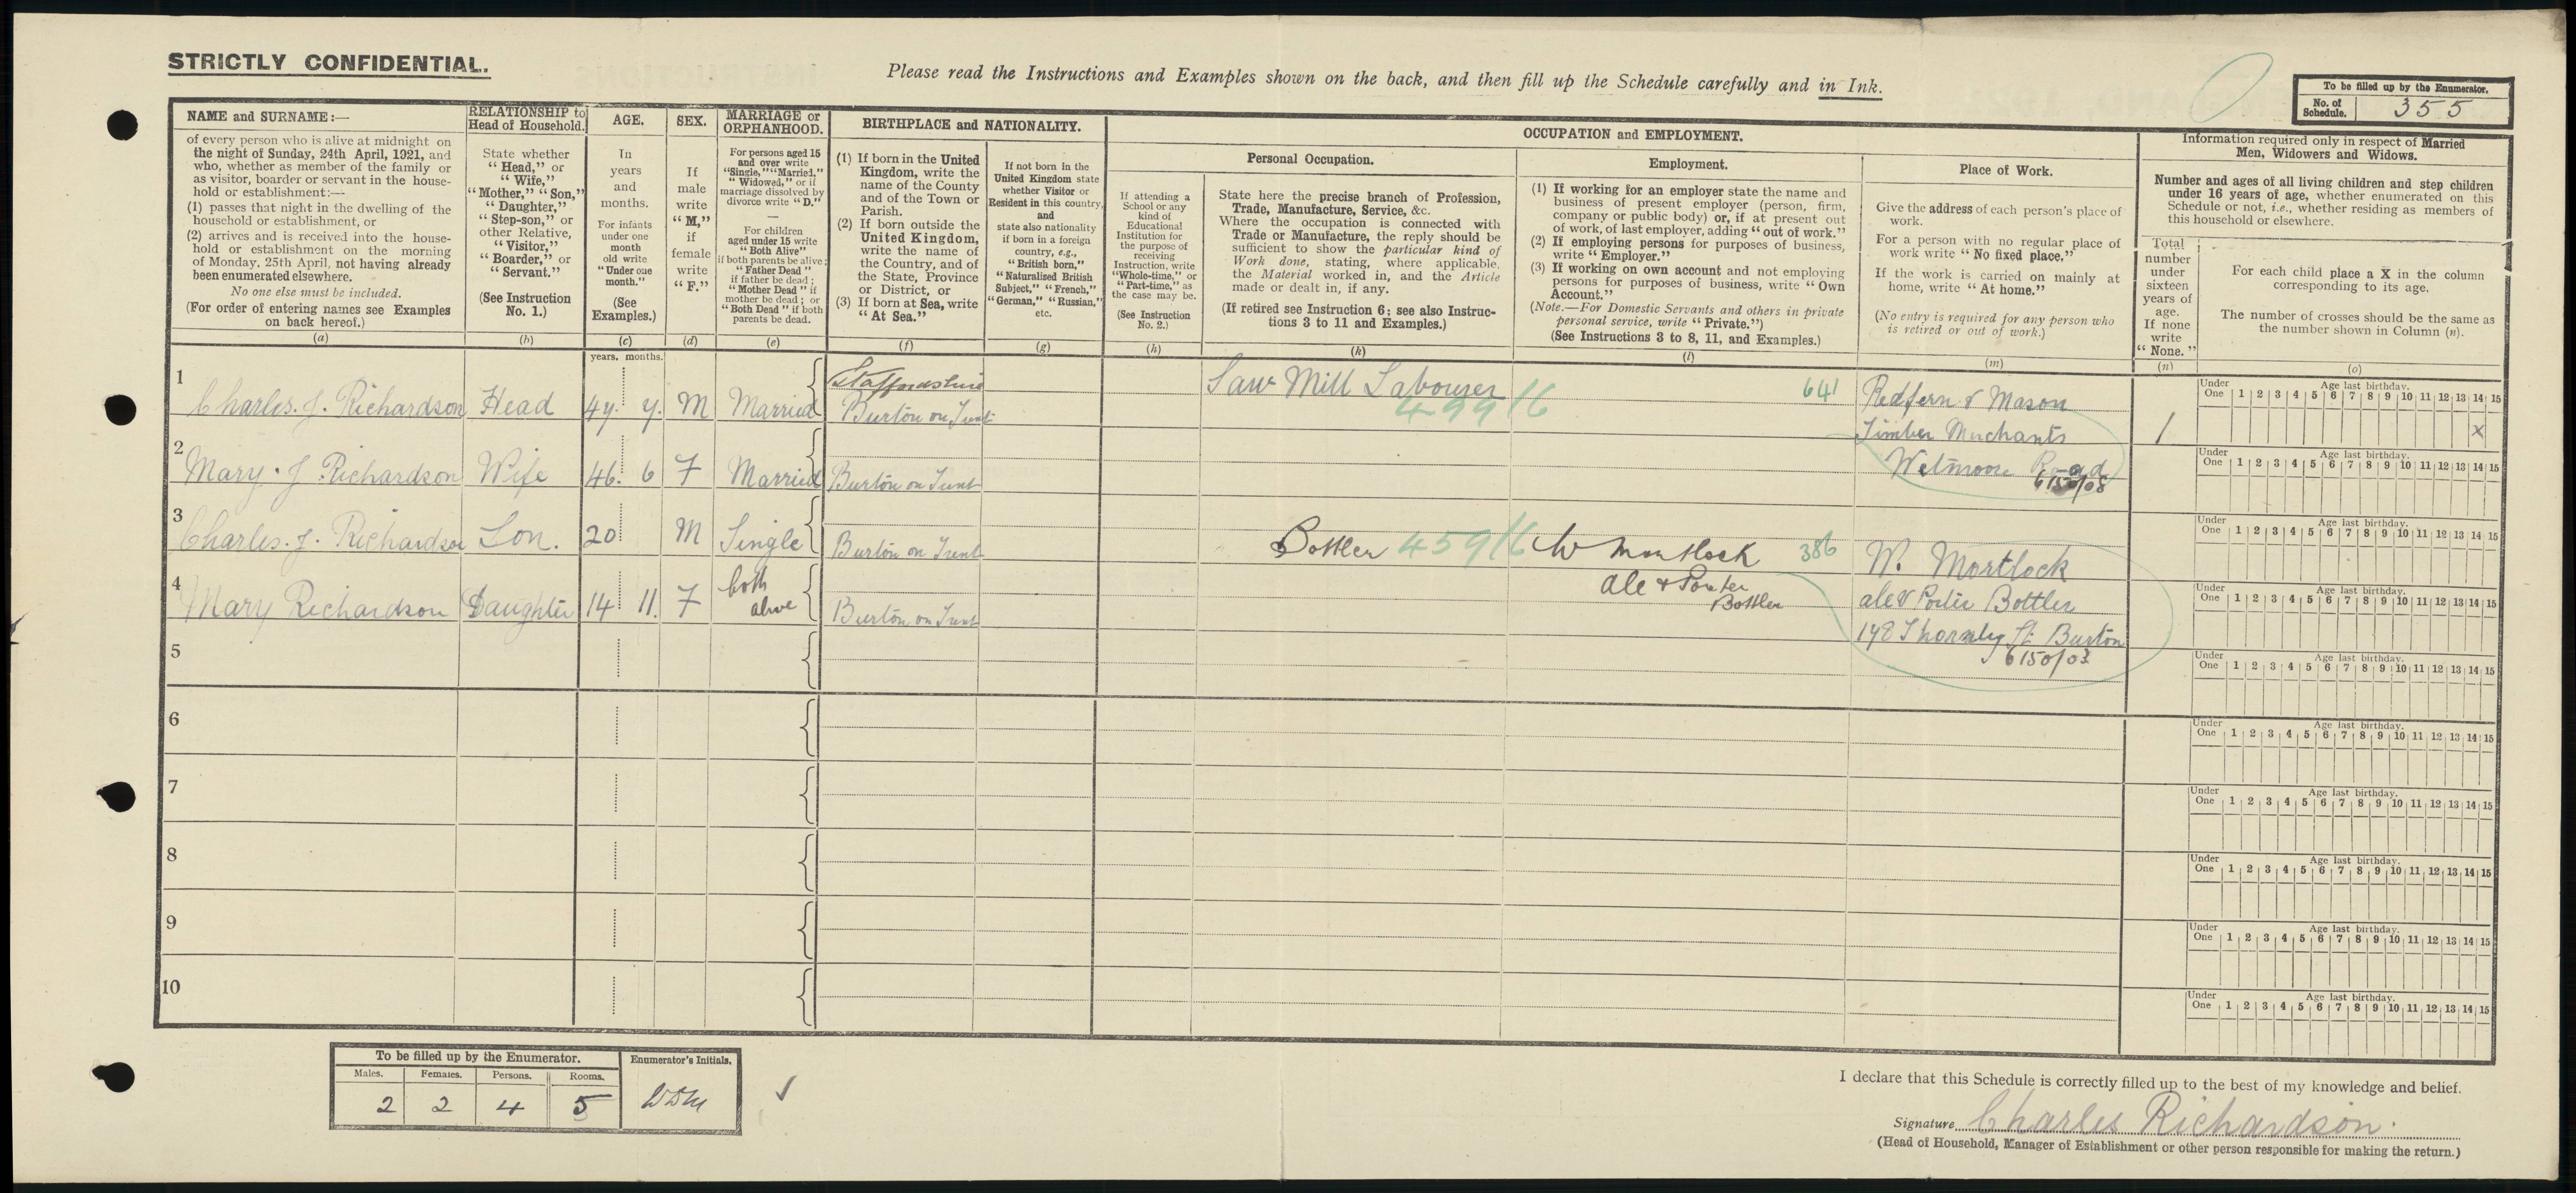 STRICTLY CONFIDENTIAL.
Please read the Instructions and Examples shown on the back, and then fill up the Schedule carefully and in Ink.
To be filled up by the Enumerator.
No. of Schedule. 355
NAME and SURNAME:—
of every person who is alive at midnight on
the night of Sunday, 24th April, 1921, and
who, whether as member of the family or
as visitor, boarder or servant in the house-
hold or establishment:—
(1) passes that night in the dwelling of the
household or establishment, or
(2) arrives and is received into the house-
hold or establishment on the morning
of Monday, 25th April, not having already
been enumerated elsewhere.
No one else must be included.
(For order of entering names see Examples
on back hereof.)
(a)
RELATIONSHIP to
Head of Household.
State whether
“Head,” or
“Wife,”
“Mother,” “Son,”
“Daughter,”
“Step-son,” or
other Relative,
“Visitor,”
“Boarder,” or
“Servant.”
(See Instruction
No. 1.)
(b)
AGE.
In
years
and
months.
For infants
under one
month
old write
“Under one
month.”
(See
Examples.)
(c)
SEX.
If
male
write
“M,”
if
female
write
“F.”
(d)
MARRIAGE or
ORPHANHOOD.
For persons aged 15
and over write
“Single,” “Married,”
“Widowed,” or if
marriage dissolved by
divorce write “D.”
—
For children
aged under 15 write
“Both Alive”
if both parents be alive;
“Father Dead”
if father be dead;
“Mother Dead” if
mother be dead; or
“Both Dead” if both
parents be dead.
(e)
BIRTHPLACE and NATIONALITY.
(1) If born in the United
Kingdom, write the
name of the County
and of the Town or
Parish.
(2) If born outside the
United Kingdom,
write the name of
the Country, and of
the State, Province
or District, or
(3) If born at Sea, write
“At Sea.”
(f)
If not born in the
United Kingdom state
whether Visitor or
Resident in this country,
and
state also nationality
if born in a foreign
country, e.g.,
“British born,”
“Naturalised British
Subject,” “French,”
“German,” “Russian,”
etc.
(g)
OCCUPATION and EMPLOYMENT.
Personal Occupation.
If attending a
School or any
kind of
Educational
Institution for
the purpose of
receiving
Instruction, write
“Whole-time,” or
“Part-time,” as
the case may be.
(See Instruction
No. 2.)
(h)
State here the precise branch of Profession,
Trade, Manufacture, Service, &c.
Where the occupation is connected with
Trade or Manufacture, the reply should be
sufficient to show the particular kind of
Work done, stating, where applicable,
the Material worked in, and the Article
made or dealt in, if any.
(If retired see Instruction 6; see also Instruc-
tions 3 to 11 and Examples.)
(k)
Employment.
(1) If working for an employer state the name and
business of present employer (person, firm,
company or public body) or, if at present out
of work, of last employer, adding “out of work.”
(2) If employing persons for purposes of business,
write “Employer.”
(3) If working on own account and not employing
persons for purposes of business, write “Own
Account.”
(Note.—For Domestic Servants and others in private
personal service, write “Private.”)
(See Instructions 3 to 8, 11, and Examples.)
(l)
Place of Work.
Give the address of each person's place of
work.
For a person with no regular place of
work write “No fixed place.”
If the work is carried on mainly at
home, write “At home.”
(No entry is required for any person who
is retired or out of work.)
(m)
Information required only in respect of Married
Men, Widowers and Widows.
Number and ages of all living children and step children
under 16 years of age, whether enumerated on this
Schedule or not, i.e., whether residing as members of
this household or elsewhere.
Total
number
under
sixteen
years of
age.
If none
write
“None.”
(n)
For each child place a X in the column
corresponding to its age.
The number of crosses should be the same as
the number shown in Column (n).
(o)
years. months.
1 Charles. J. Richardson Head 47. 7. M Married Staffordshire
Burton on Trent
Saw Mill Labourer
499/6
641
Redfern & Mason
Timber Merchants
Wetmore Road
6150/08
1
Under One Age last birthday. 1 2 3 4 5 6 7 8 9 10 11 12 13 14 15
x
2 Mary. J Richardson Wife 46. 6 F Married Burton on Trent
Under One Age last birthday. 1 2 3 4 5 6 7 8 9 10 11 12 13 14 15
3 Charles. J. Richardson Son. 20 M Single Burton on Trent
Bottler 459/6 W Mortlock 386
Ale & Porter
Bottler
W. Mortlock
ale & Porter Bottler
148 Thornley St Burton
6150/03
Under One Age last birthday. 1 2 3 4 5 6 7 8 9 10 11 12 13 14 15
4 Mary Richardson Daughter 14 11. F both alive Burton on Trent
Under One Age last birthday. 1 2 3 4 5 6 7 8 9 10 11 12 13 14 15
5
Under One Age last birthday. 1 2 3 4 5 6 7 8 9 10 11 12 13 14 15
6
Under One Age last birthday. 1 2 3 4 5 6 7 8 9 10 11 12 13 14 15
7
Under One Age last birthday. 1 2 3 4 5 6 7 8 9 10 11 12 13 14 15
8
Under One Age last birthday. 1 2 3 4 5 6 7 8 9 10 11 12 13 14 15
9
Under One Age last birthday. 1 2 3 4 5 6 7 8 9 10 11 12 13 14 15
10
Under One Age last birthday. 1 2 3 4 5 6 7 8 9 10 11 12 13 14 15
To be filled up by the Enumerator.
Males. Females. Persons. Rooms.
2 2 4 5
Enumerator's Initials.
I declare that this Schedule is correctly filled up to the best of my knowledge and belief.
Signature Charles Richardson.
(Head of Household, Manager of Establishment or other person responsible for making the return.)